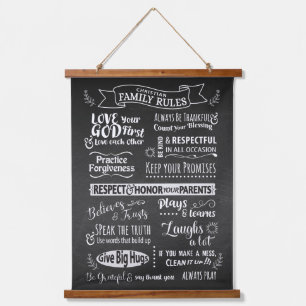 CHRISTIAN
FAMILY RULES
LOVE Your
GOD First
& Love each other
Always Be Thankful &
Count Your Blessing
BE KIND & RESPECTFUL
IN ALL OCCASION
Practice
Forgiveness
KEEP YOUR PROMISES
RESPECT & HONOR YOUR PARENTS
Believes
& Trusts
Plays &
learns
SPEAK THE TRUTH
& Use words that build up
Laughs
a lot
Give Big Hugs
IF YOU MAKE A MESS,
CLEAN IT UP!!!
Be Grateful & say thank you
ALWAYS PRAY